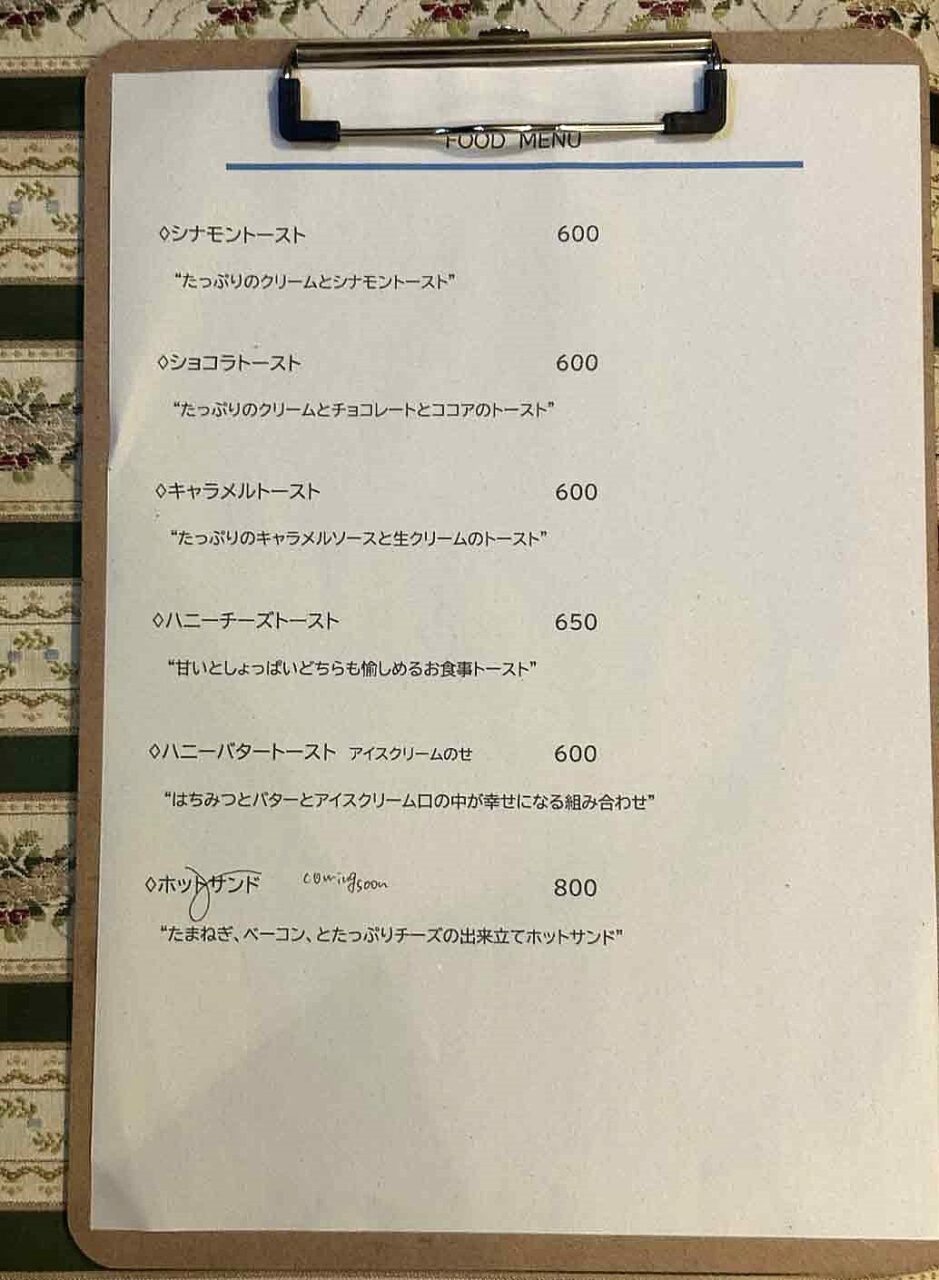 FOOD MENU
◇シナモントースト 600
“たっぷりのクリームとシナモントースト”
◇ショコラトースト 600
“たっぷりのクリームとチョコレートとココアのトースト”
◇キャラメルトースト 600
“たっぷりのキャラメルソースと生クリームのトースト”
◇ハニーチーズトースト 650
“甘いとしょっぱいどちらも愉しめるお食事トースト”
◇ハニーバタートースト アイスクリームのせ 600
“はちみつとバターとアイスクリーム口の中が幸せになる組み合わせ”
◇ホットサンド coming soon 800
“たまねぎ、ベーコン、とたっぷりチーズの出来立てホットサンド”